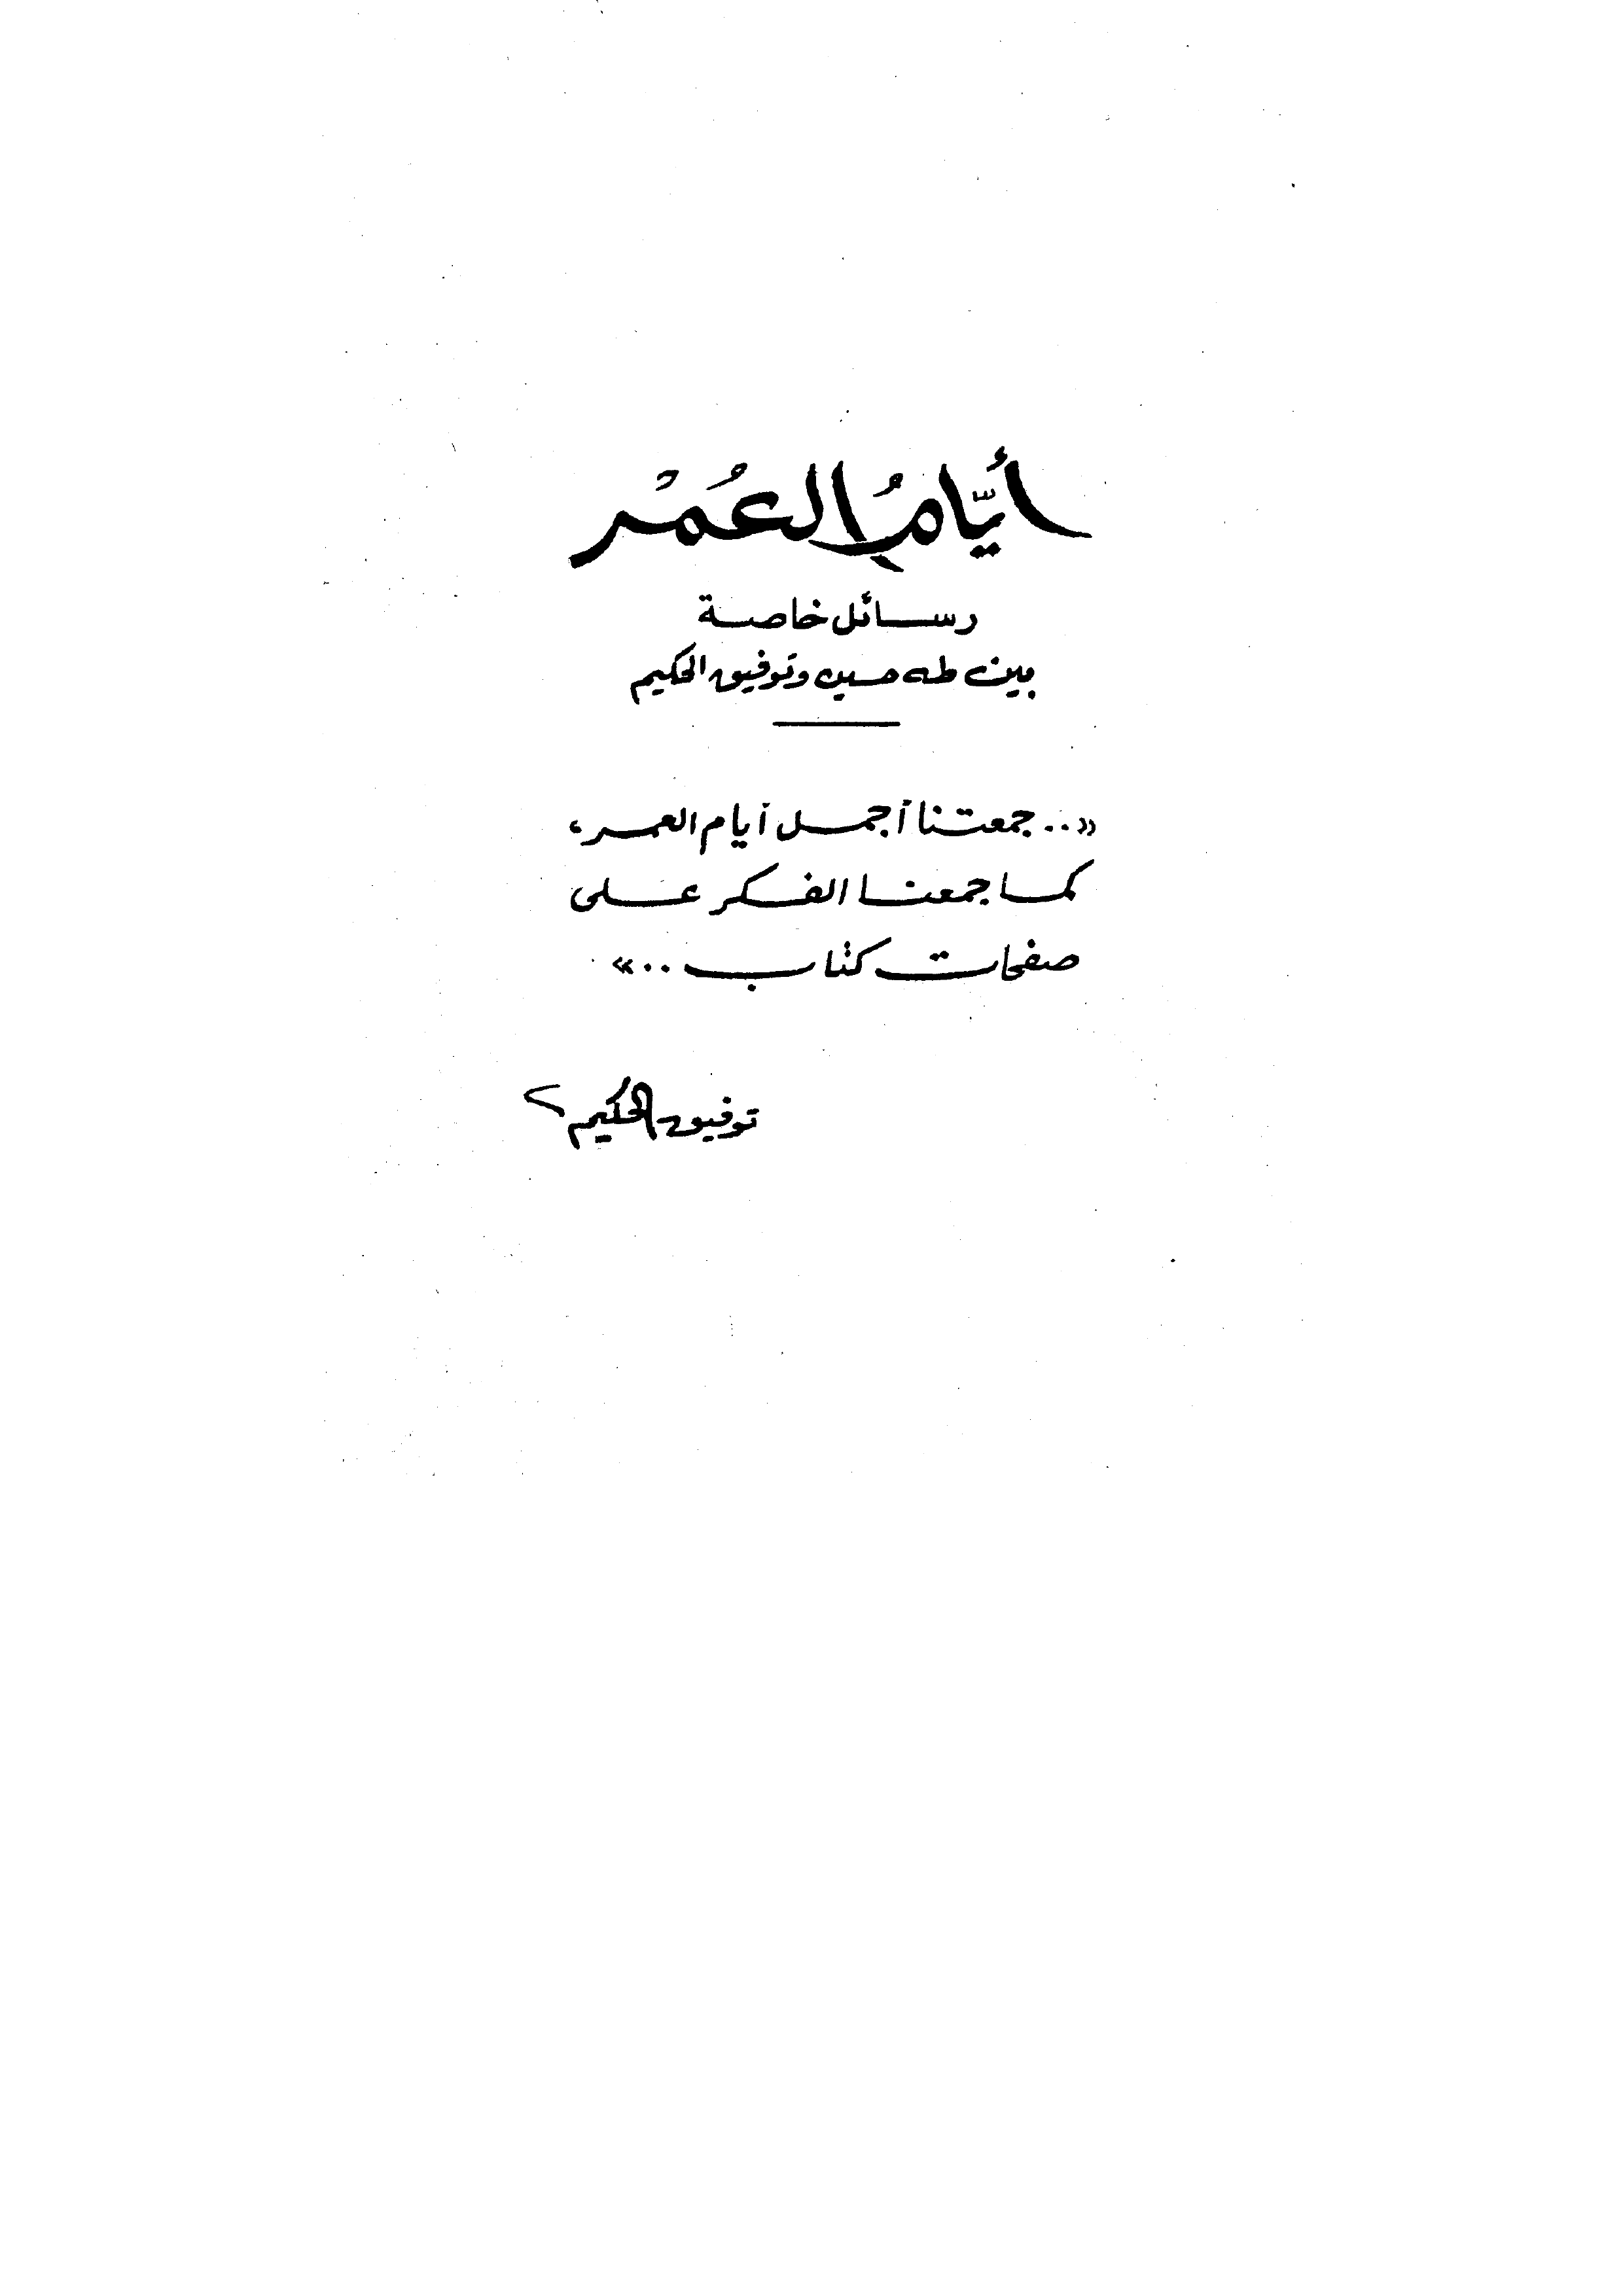 أيَّامُ العُمُرْ
رسائل خاصة
بين طه حسين وتوفيق الحكيم
«.. جمعتنا أجمل أيام العمر،
كما جمعنا الفكر على
صفحات كتاب ..»
توفيق الحكيم